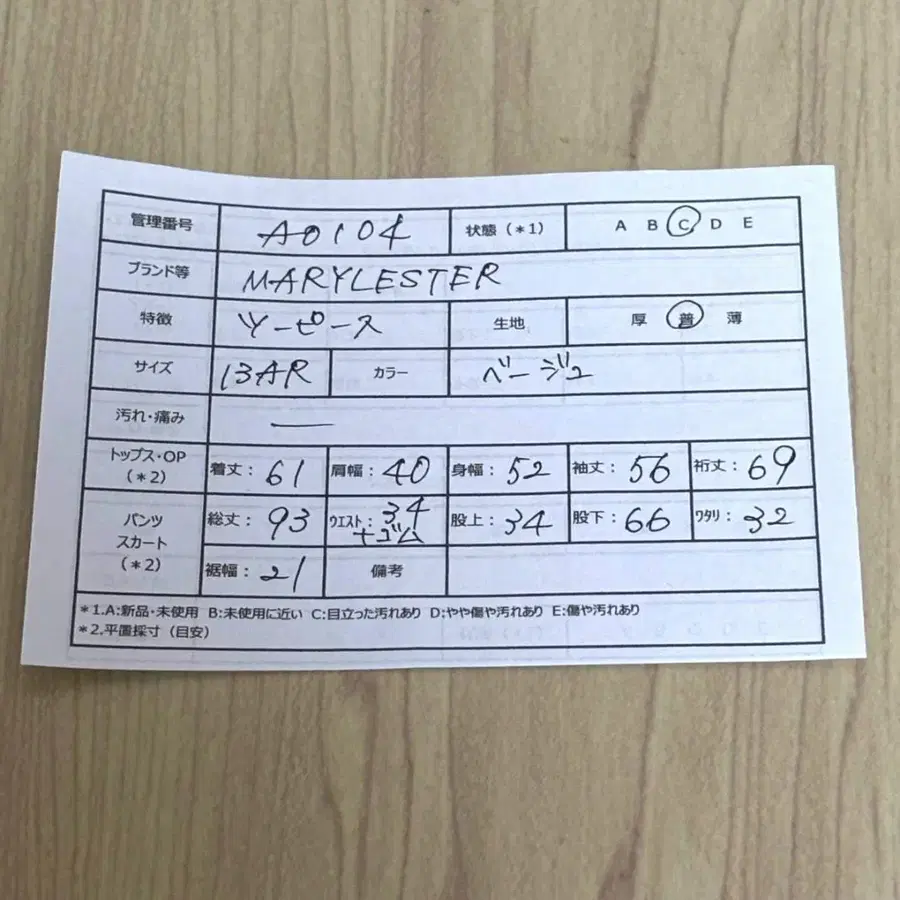 管理番号 A0104 状態（*1） A B C D E
ブランド等 MARYLESTER
特徴 ツーピース 生地 厚 普 薄
サイズ 13AR カラー ベージュ
汚れ・痛み —
トップス・OP（*2） 着丈：61 肩幅：40 身幅：52 袖丈：56 裄丈：69
パンツ スカート（*2） 総丈：93 ウエスト：34+ゴム 股上：34 股下：66 ワタリ：32
裾幅：21 備考
*1.A:新品・未使用 B:未使用に近い C:目立った汚れあり D:やや傷や汚れあり E:傷や汚れあり
*2.平置採寸（目安）